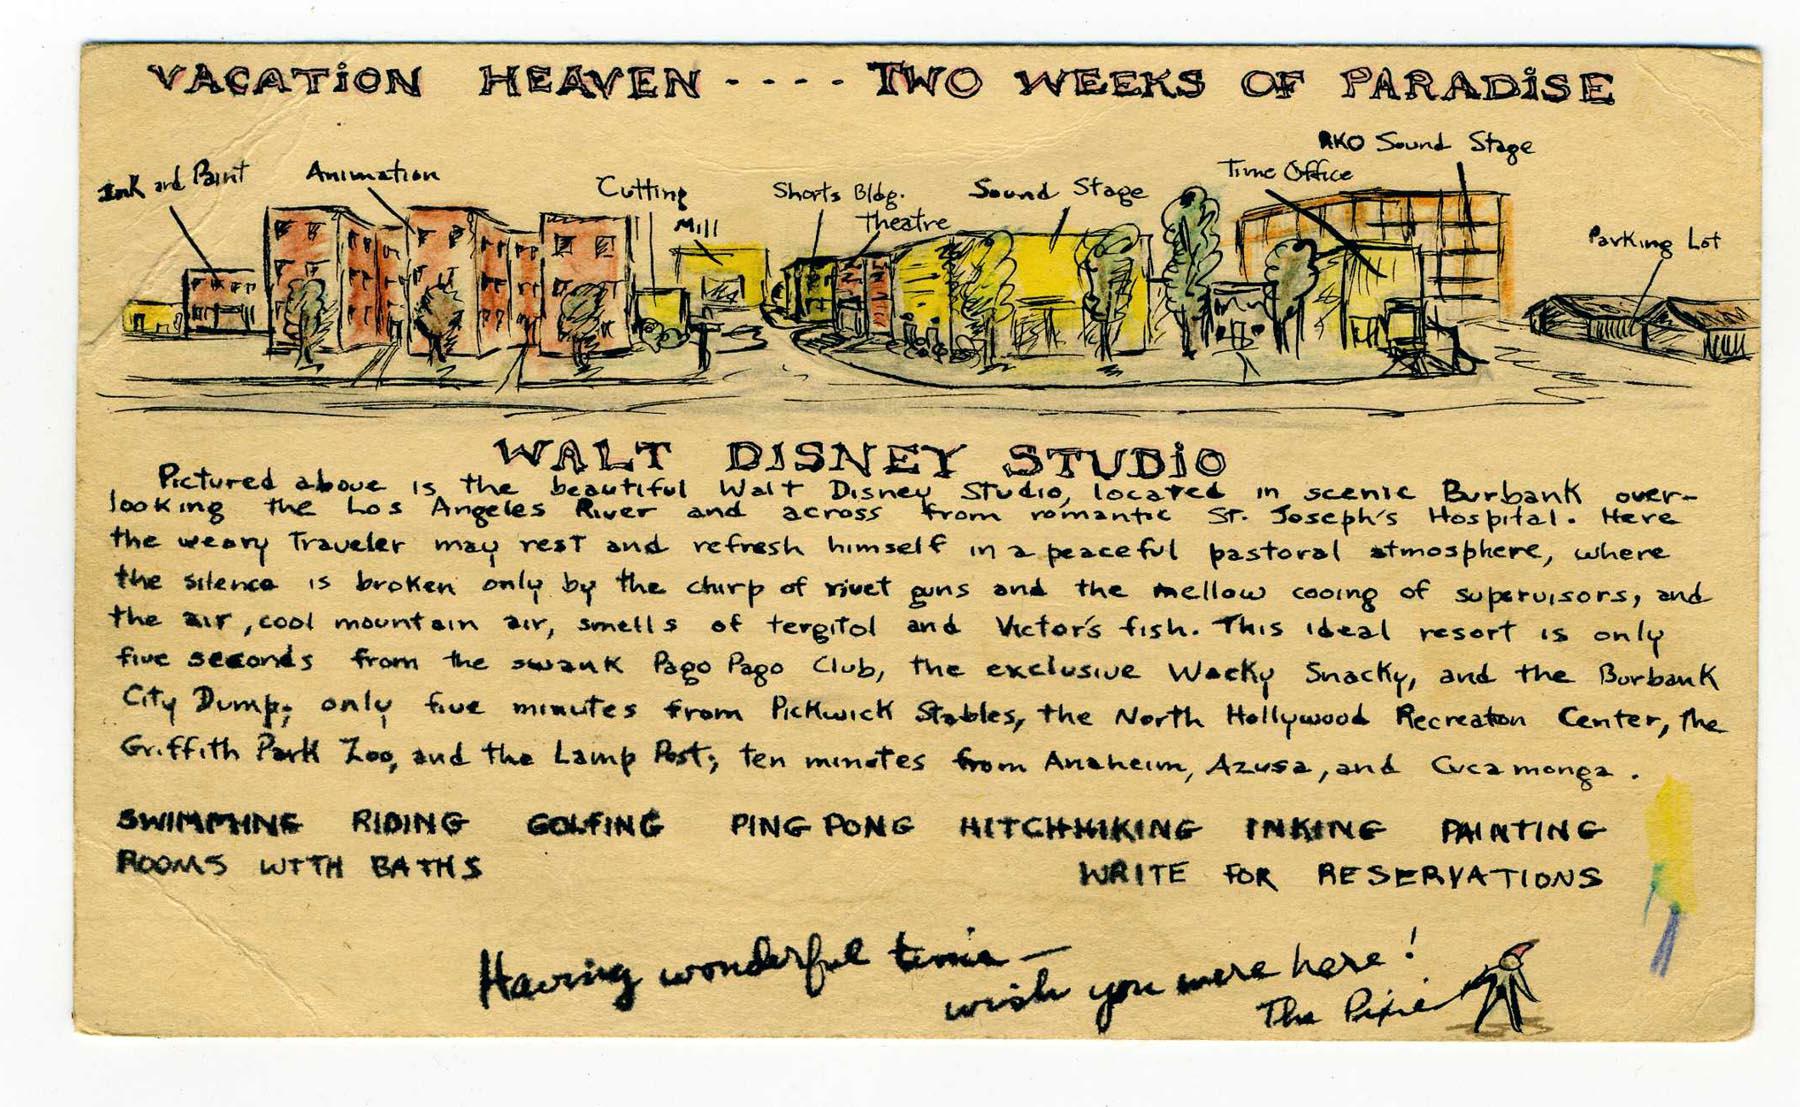 VACATION HEAVEN ---- TWO WEEKS OF PARADISE
RKO Sound Stage
Ink and Paint
Animation
Cutting
Mill
Shorts Bldg.
Theatre
Sound Stage
Time Office
Parking Lot
WALT DISNEY STUDIO
Pictured above is the beautiful Walt Disney Studio, located in scenic Burbank over-
looking the Los Angeles River and across from romantic St. Joseph's Hospital. Here
the weary Traveler may rest and refresh himself in a peaceful pastoral atmosphere, where
the silence is broken only by the chirp of rivet guns and the mellow cooing of supervisors, and
the air, cool mountain air, smells of tergitol and Victor's fish. This ideal resort is only
five seconds from the swank Pago Pago Club, the exclusive Wacky Snacky, and the Burbank
City Dump; only five minutes from Pickwick Stables, the North Hollywood Recreaton Center, the
Griffith Park Zoo, and the Lamp Post; ten minutes from Anaheim, Azusa, and Cucamonga.
SWIMMING RIDING GOLFING PING PONG HITCHHIKING INKING PAINTING
ROOMS WITH BATHS WRITE FOR RESERVATIONS
Having wonderful time —
wish you were here!
The Pixie